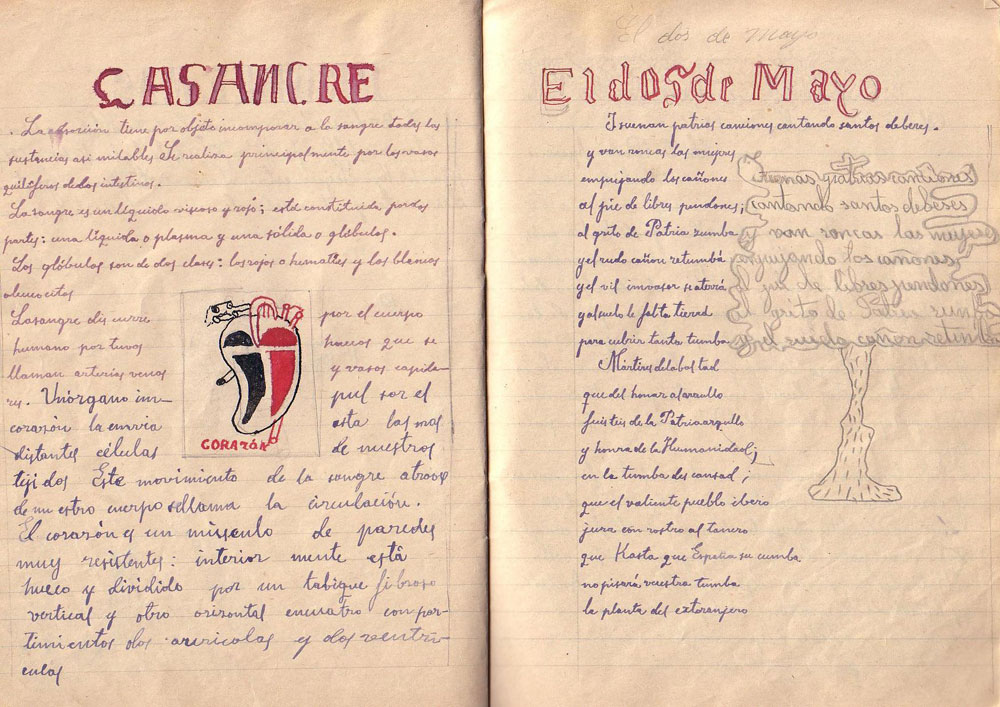 LA SANGRE
La absorción tiene por objeto incorporar a la sangre todas las
sustancias asimilables Se realiza principalmente por los vasos
quilíferos de los intestinos.
La sangre es un líquido viscoso y rojo; esta constituida por dos
partes: una líquida o plasma y una sólida o glóbulos.
Los glóbulos son de dos clases: los rojos o hematíes y los blancos
o leucocitos
La sangre discurre por el cuerpo
humano por tuvos huecos que se
llaman arterias venas y vasos capila-
res. Un órgano im- pulsor el
corazón la envia asta las mas
distantes células de nuestros
tejidos Este movimiento de la sangre atraves
de nuestro cuerpo se llama la circulación.
El corazón es un músculo de paredes
muy resistentes: interior mente está
hueco y dividido por un tabique fibroso
vertical y otro orizontal en cuatro com par-
timientos dos auricolas y dos ventrí-
culas
CORAZÓN
El dos de Mayo
El dos de Mayo
I suenan patrias canciones cantando santos deberes.
y van roncas las mujeres
empujando los cañones
al pie de libres pendones;
al grito de Patria zumba
y el rudo cañon retumbá
y el vil invasor se aterrá
y al suelo le falta tierrad
para cubrir tanta tumba
Mártires de la lealtad
que del honor al arrullo
fuisteis de la Patria orgullo
y honra de la Humanidad;
en la tumba descansad;
que el valiente pueblo ibero
jura con rostro altanero
que Hasta que España sucumba
no pisará vuestra tumba
la planta del extranjero
patrias canciones
cantando santos deberes
y van roncas las mujer
empujando los cañones
al pie de libres pendones
al grito de Patria zum
y el ruido cañon retumba